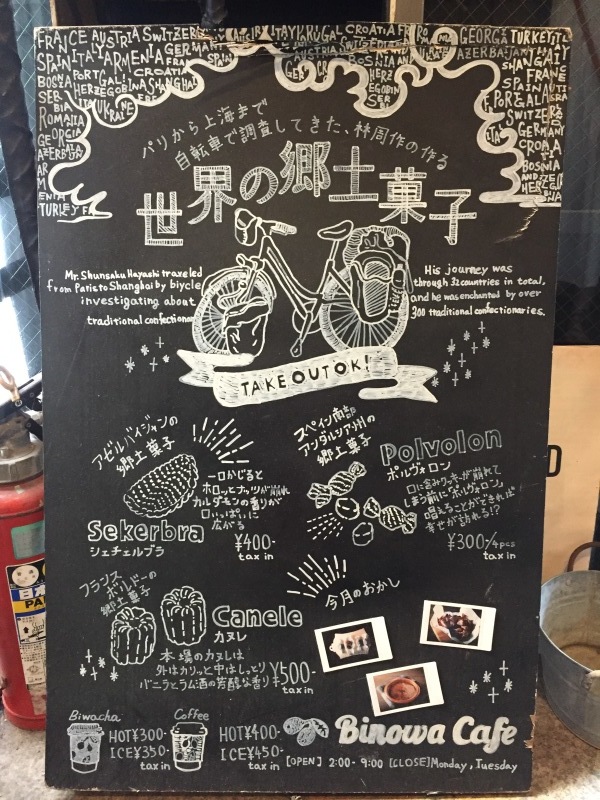 FRANCE AUSTRIA SWITZER
SPAIN ITALY ARMENIA GERMANY
BOSNIA PORTGAL CROATIA
HERZEGOBINA SHANGHAI
UKRAINE
ROMANIA
GEORGIA
AZERBAIJAN
ARMENIA
TURLEY FA
ITALY
CROATIA FR
GEORGIA TURKEY ITA
AZERBAIJAN
SHANGHAI
FRANE
SPAIN AUTI
SRA
PORGALA
SWITZER
GERMANY
CROAA
BOSNIA
ANDZE
HERZEGO
パリから上海まで
自転車で調査してきた、林周作の作る
世界の郷土菓子
Mr. Shunsaku Hayashi traveled
from Paris to Shanghai by bicycle
investigating about
traditional confection
His journey was
through 32 countries in total,
and he was enchanted by over
300 traditional confectionaries.
TAKE OUT OK!
アゼルバイジャンの
郷土菓子
一口かじると
ホロッとナッツが崩れ
カルダモンの香りが
口いっぱいに
広がる
Sekerbra
シェチェルブラ
¥400-
tax in
スペイン南部
アンダルシア州の
郷土菓子
Polvolon
ポルヴォロン
口に含みクッキーが崩れて
しまう前に「ポルヴォロン」
唱えることができれば
幸せが訪れる!?
¥300/4pcs
tax in
フランス
ボルドーの
郷土菓子
Canele
カヌレ
本場のカヌレは
外はカリッと中はしっとり
バニラとラム酒の芳醇な香り
¥500-
tax in
今月のおかし
Biwacha
HOT¥300-
ICE¥350-
tax in
Coffee
HOT¥400-
ICE¥450-
tax in
Binowa Cafe
[OPEN] 2:00-9:00 [CLOSE] Monday, Tuesday